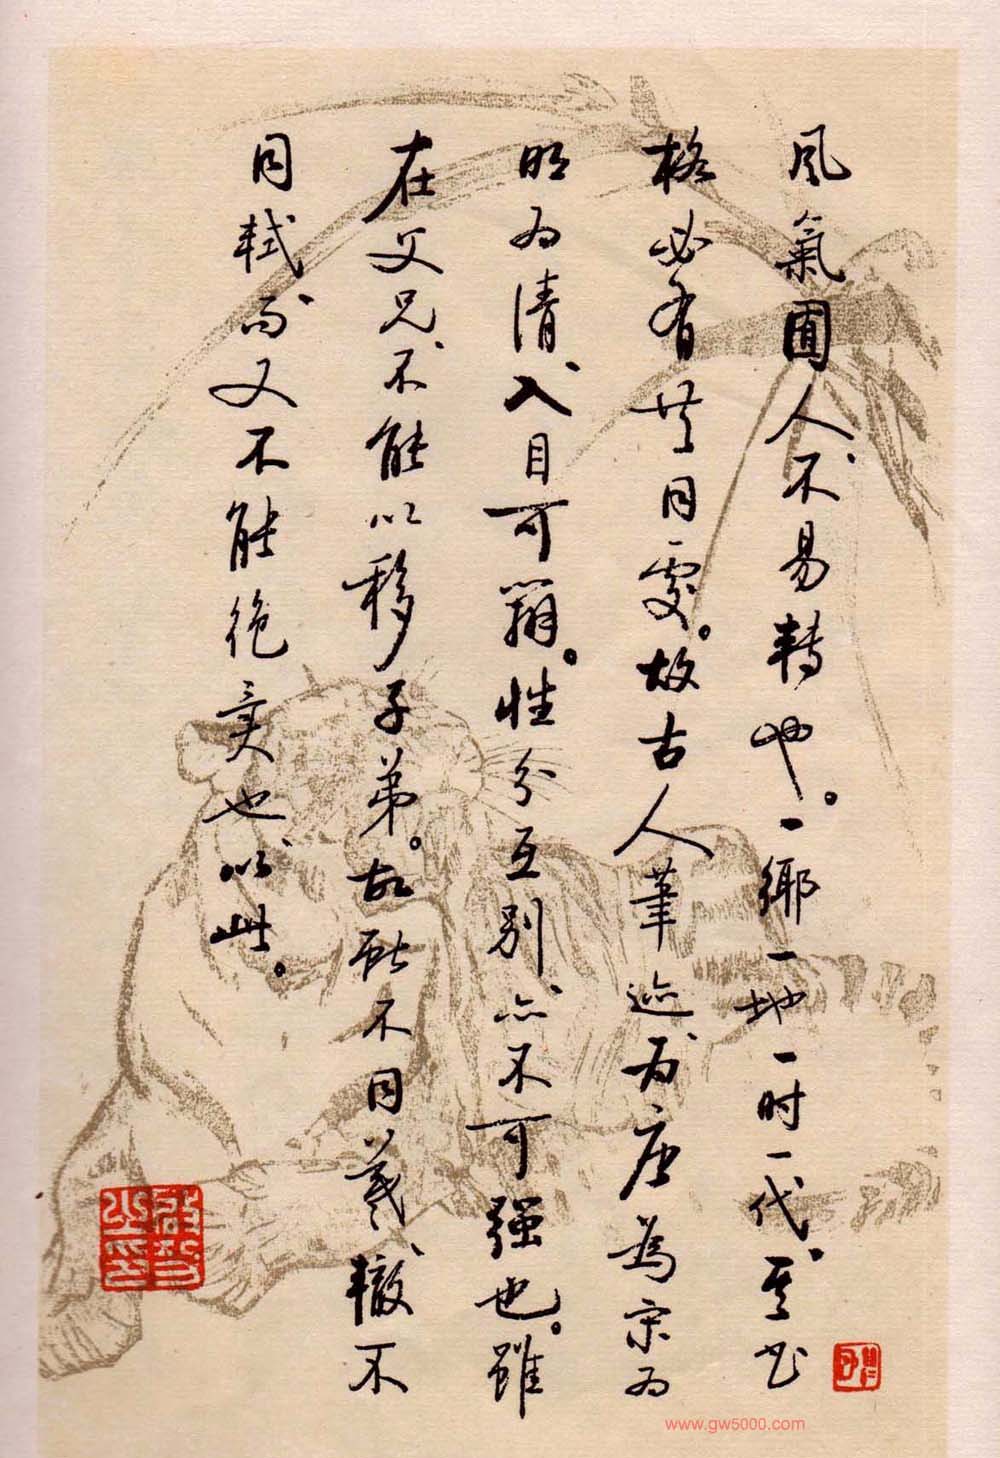 風氣囿人、不易轉也。一鄉一地一时一代、其书
格必有共同處。故古人筆迹、为唐為宋为
明为清、入目可辨。性分互别、亦不可强也。雖
在父兄、不能以移子弟。故献不同羲、轍不
同軾、而又不能絶異也、以此。
www.gw5000.com